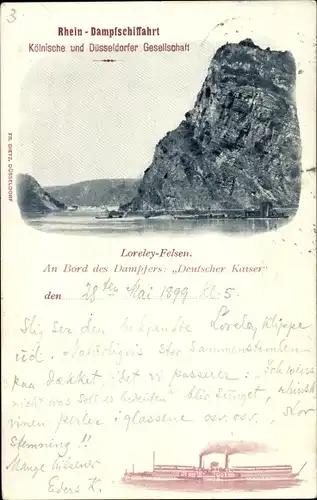 3
Rhein-Dampfschiffahrt
Kölnische und Düsseldorfer Gesellschaft
FR. DIETZ, DÜSSELDORF
Loreley-Felsen.
An Bord des Dampfers: „Deutscher Kaiser"
den 28ten Mai 1899 Kl. 5.
Jeg ser den Loreley klippe
ud. Naturligvis stor Sammenstimlen
paa dækket, idet vi passerer: „Ich weiss
nicht was soll es bedeuten" blir sunget,
vinen perler i glassene osv. osv. Stor
Stemning!!
Mange hilsener
Eders K.